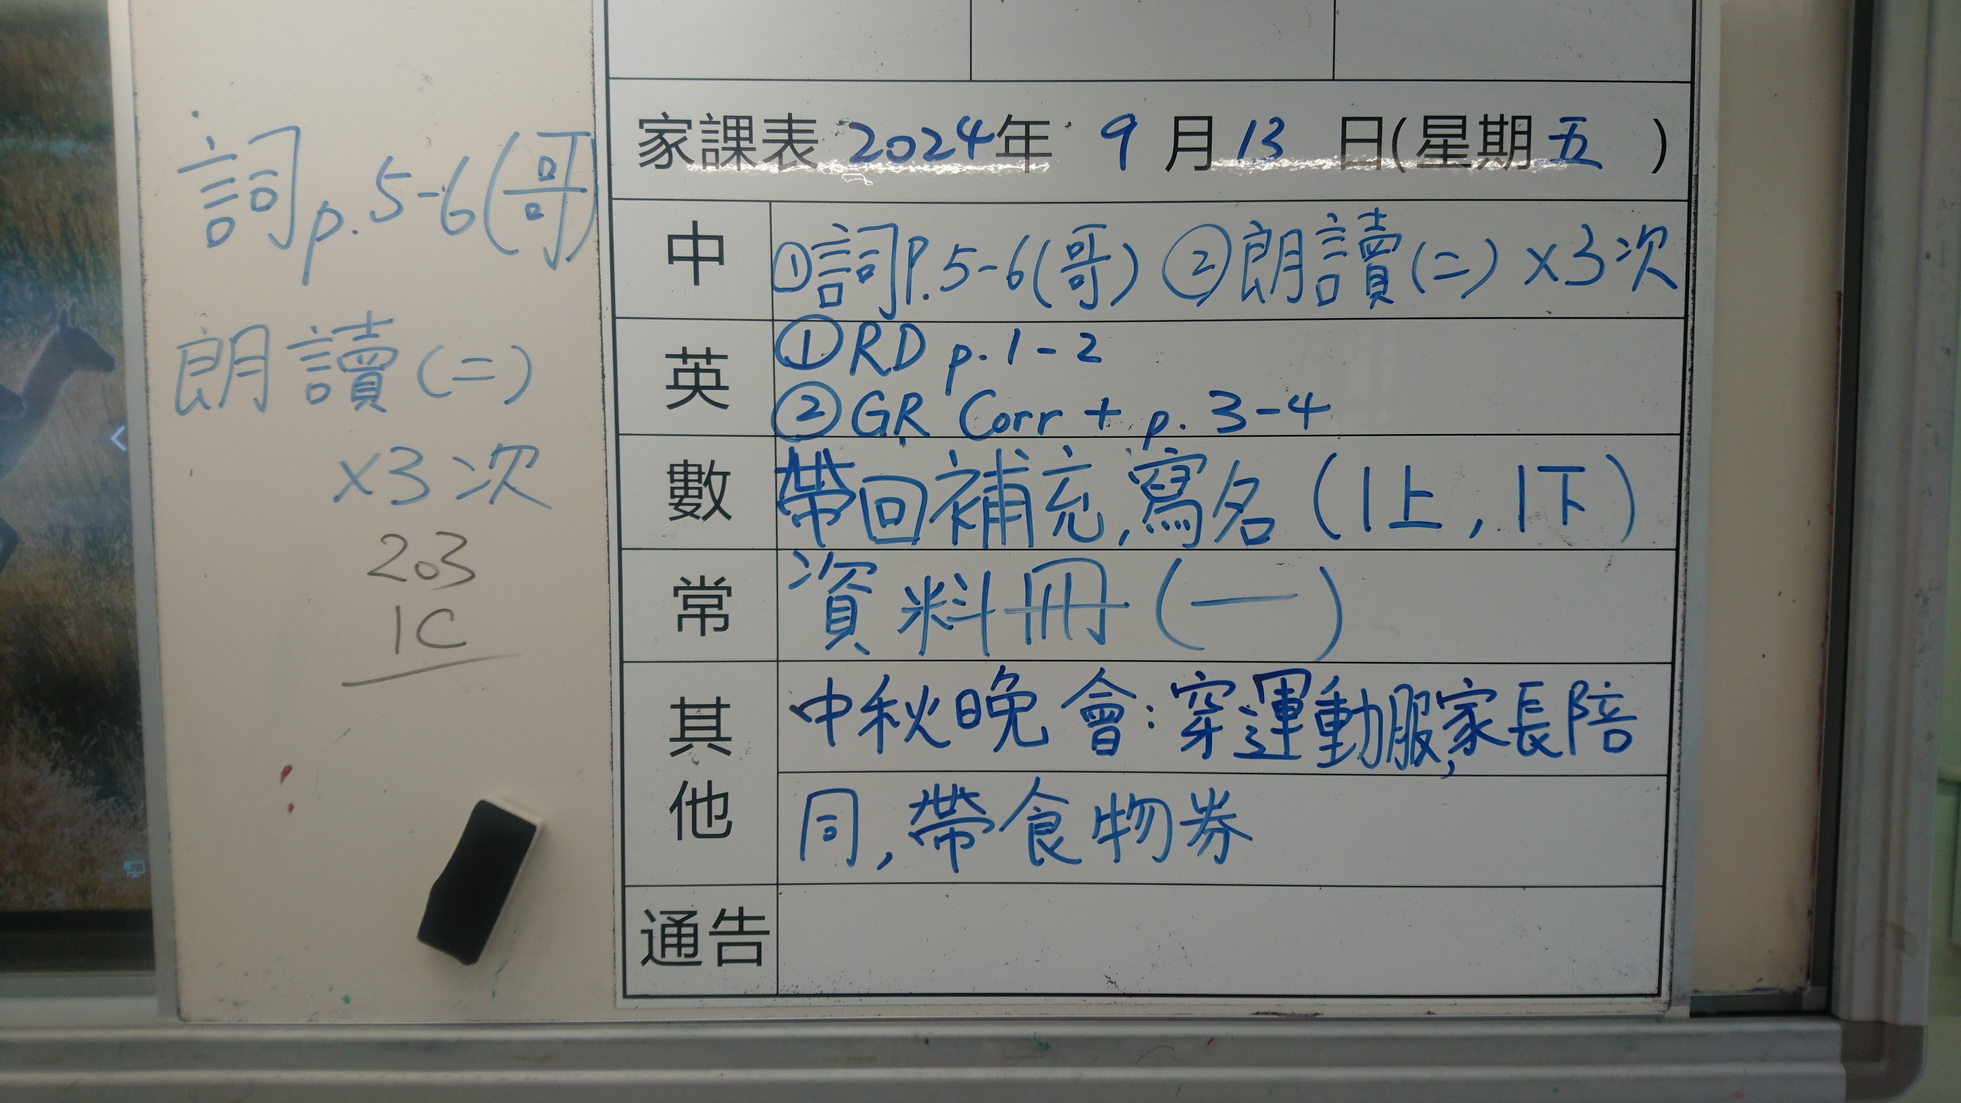 詞p.5-6(哥)
朗讀(二)
x3次
203
1C
家課表 2024年 9月13日(星期五)
中 ①詞P.5-6(哥) ②朗讀(二) x3次
英 ①RD p.1-2
②GR Corr + p.3-4
數 帶回補充,寫名(1上,1下)
常 資料冊(一)
其他 中秋晚會:穿運動服,家長陪
同,帶食物券
通告